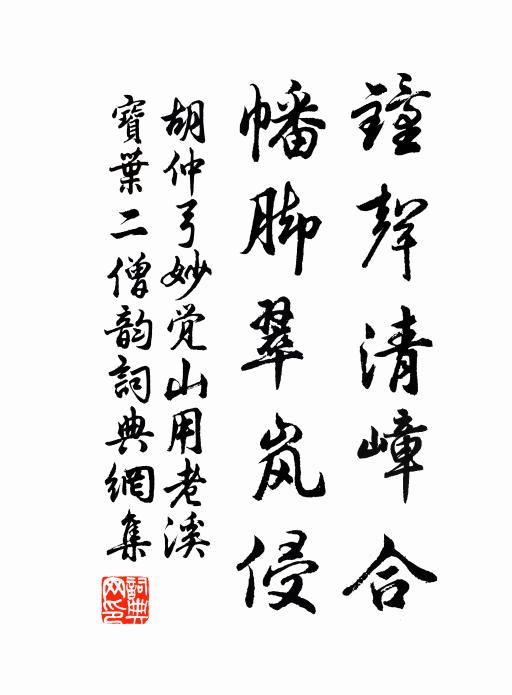 鐘聲清嶂合
幡脚翠岚侵
胡仲弓妙觉山用老溪
寶葉二僧韵詞典網集
詞典網印